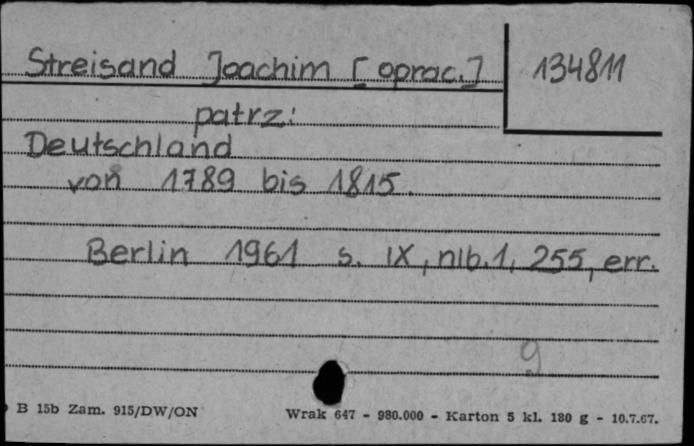 Streisand Joachim [oprac.] 134811
patrz:
Deutschland
von 1789 bis 1815.
Berlin 1961 s. IX, nlb.1, 255, err.
9
B 15b Zam. 915/DW/ON Wrak 647 - 980.000 - Karton 5 kl. 180 g - 10.7.67.